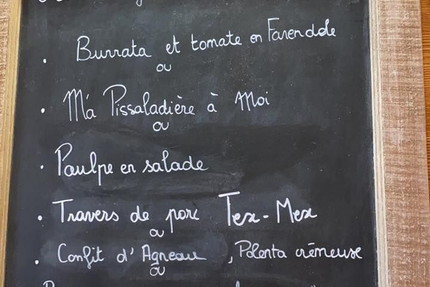 . Burrata et tomate en Farendole
ou
. Ma Pissaladière à Moi
ou
. Paulpe en salade
. Travers de porc Tex-Mex
ou
. Confit d'Agneau, Polenta crémeuse
ou